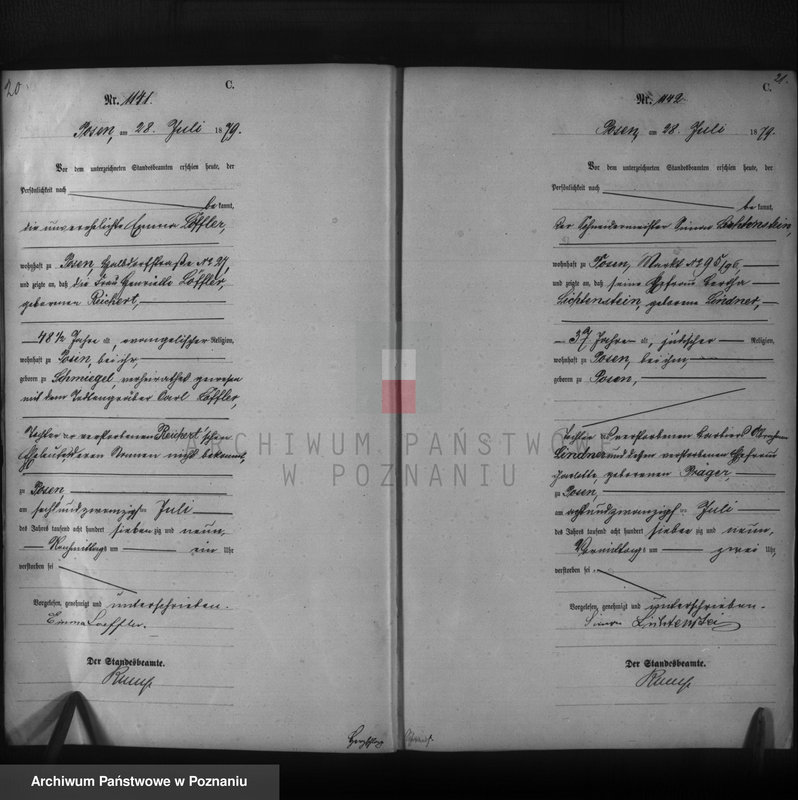 20.
C.
Nr. 1141.
Posen, am 28. Juli 1879.
Vor dem unterzeichneten Standesbeamten erschien heute, der
Persönlichkeit nach
be kannt,
die unverehelichte Emma Löffler,
wohnhaft zu Posen, Halbdorfstraße No 27,
und zeigte an, daß die Frau Henriette Löffler,
geborenen Reichert,
48 1/2 Jahre alt, evangelischer Religion,
wohnhaft zu Posen, bei ihr,
geboren zu Schmiegel, verheirathet gewesen
mit dem Todtengräber Carl Löffler,
Tochter der verstorbenen Reichert'schen
Eheleute, deren Namen nicht bekannt,
zu Posen
am sechsundzwanzigsten Juli
des Jahres tausend acht hundert siebenzig und neun,
Nachmittags um ein Uhr
verstorben sei
Vorgelesen, genehmigt und unterschrieben.
Emma Loeffler.
Der Standesbeamte.
21.
C.
Nr. 1142.
Posen, am 28. Juli 1879.
Vor dem unterzeichneten Standesbeamten erschien heute, der
Persönlichkeit nach
be kannt,
der Schneidermeister Simon Lichtenstein,
wohnhaft zu Posen, Markt No 95/96,
und zeigte an, daß seine Ehefrau Bertha
Lichtenstein, geborene Lindner,
37 Jahre alt, jüdischer Religion,
wohnhaft zu Posen, bei ihm,
geboren zu Posen,
Tochter des verstorbenen Abraham
Lindner und dessen verstorbenen Ehefrau
geborenen Präger,
zu Posen,
am achtundzwanzigsten Juli
des Jahres tausend acht hundert siebenzig und neun,
Vormittags um zwei Uhr,
verstorben sei.
Vorgelesen, genehmigt und unterschrieben.
Simon Lichtenstein
Der Standesbeamte.
ARCHIWUM PAŃSTWOWE
W POZNANIU
Archiwum Państwowe w Poznaniu